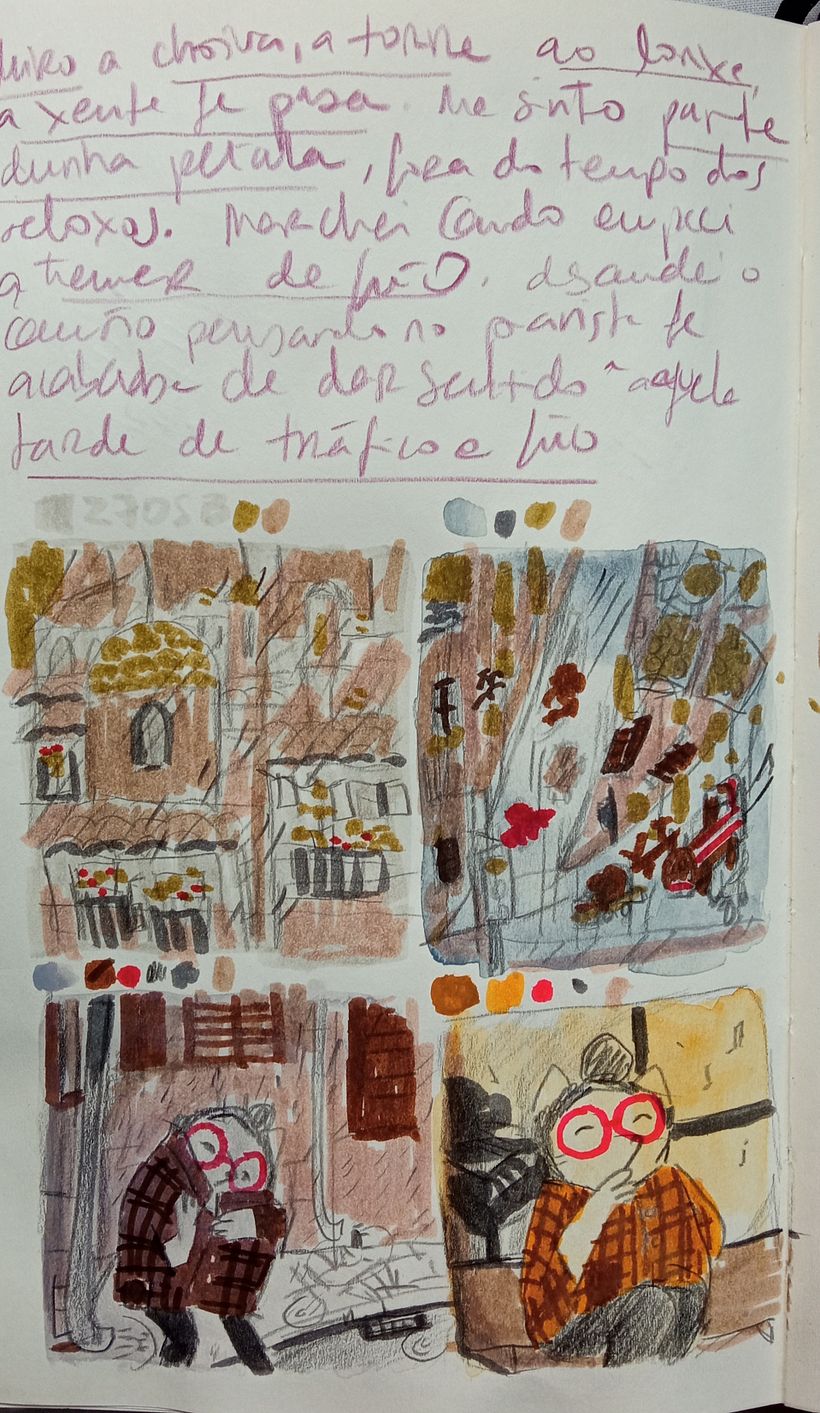 miro a choiva, a torre ao lonxe,
a xente que pasa. Me sinto parte
dunha petala, fora do tempo dos
reloxos. Marchei cando empecei
a tremer de frío. desandei o
camiño pensando no pianista que
acababa de dar sentido a aquela
tarde de tráfico e frío